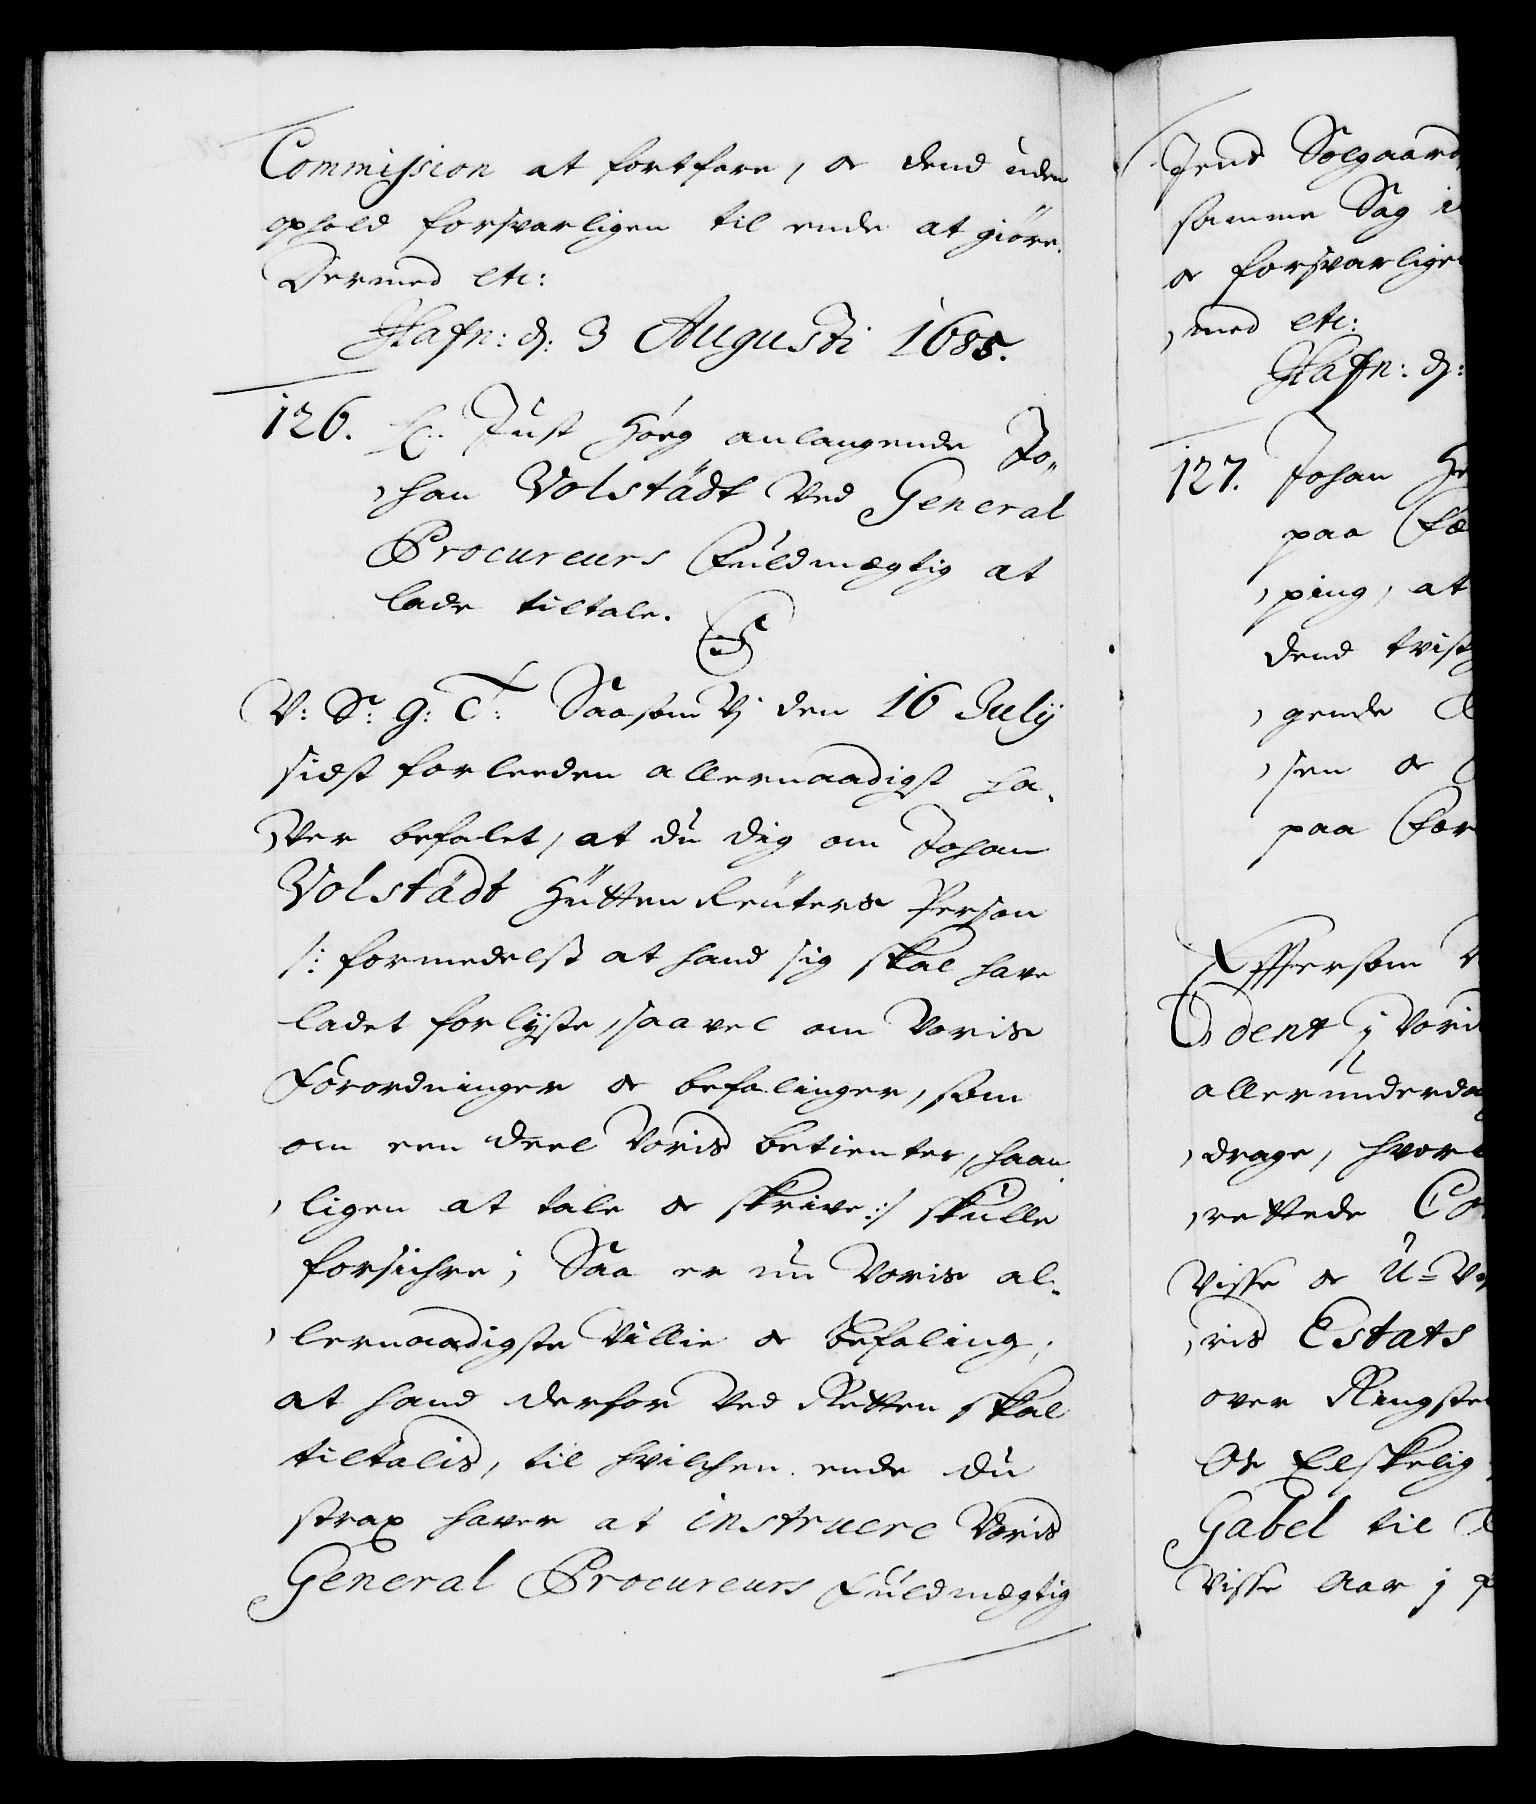 Commission at fortfare, oc dend uden
ophold forsvarligen til ende at giöre.
Dermed etc:
Hafn: d: 3 Augusti 1685.
126. Just Höeg anlangende Jo-
han Volstädt ved General
Procureurs Fuldmægtig at
lade tiltale.
V: S: g: T: Saasom Vj den 16 Julij
sidst forleeden allernaadigst ha-
ver befalet, at du dig om Johan
Volstädt Hütten Reuters Person
/: formedelst at hand sig skal have
ladet forlyste, saavel om Voris
Forordninger oc befalinger, som
om een deel Voris betienter, haan-
ligen at tale oc skrive :/ skulle
forsichre; Saa er nu Voris al-
lernaadigste Villie oc befaling,
at hand derfor ved Retten skal
tiltalis, til hvilchen ende du
strax haver at instruere Voris
General Procureurs Fuldmægtig
Jens Solgaard
samme Sag i
oc forsvarlige
med etc:
Hafn: d:
127. Johan
paa
ping, at
dend tvist
gende
sen oc
paa For
Effersom
dent j Vori
allerunderda
drage, hvor
rettede
Visse oc U-v
ris Estats
over Ringste
Os Elskelig
Gabel til
Visse Aar j